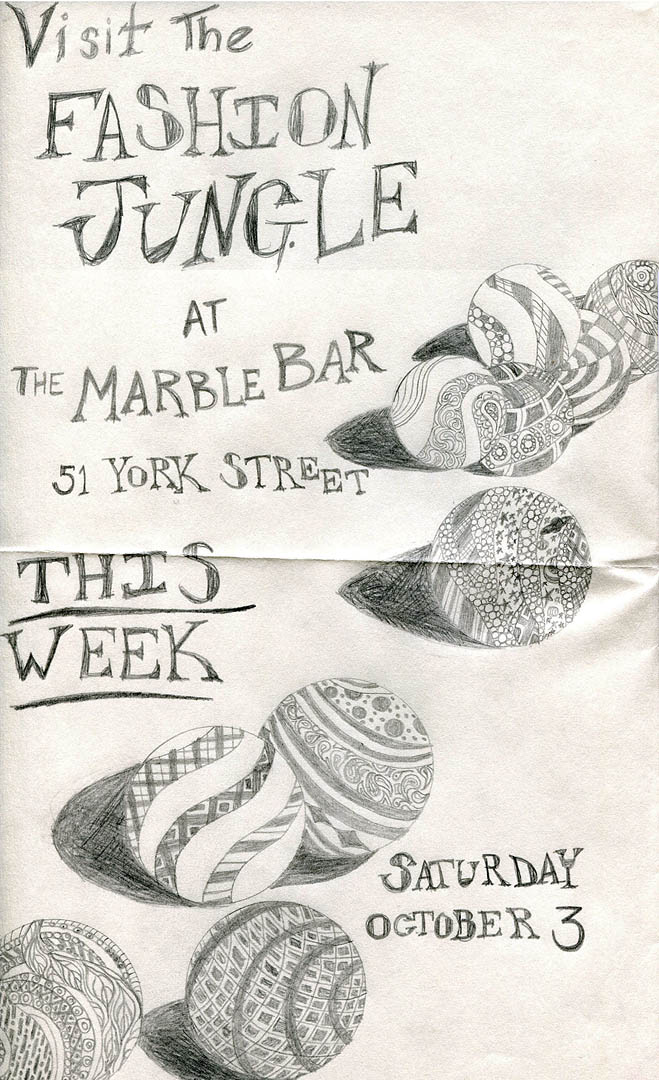 Visit The
FASHION
JUNGLE
AT
THE MARBLE BAR
51 YORK STREET
THIS
WEEK
SATURDAY
OCTOBER 3